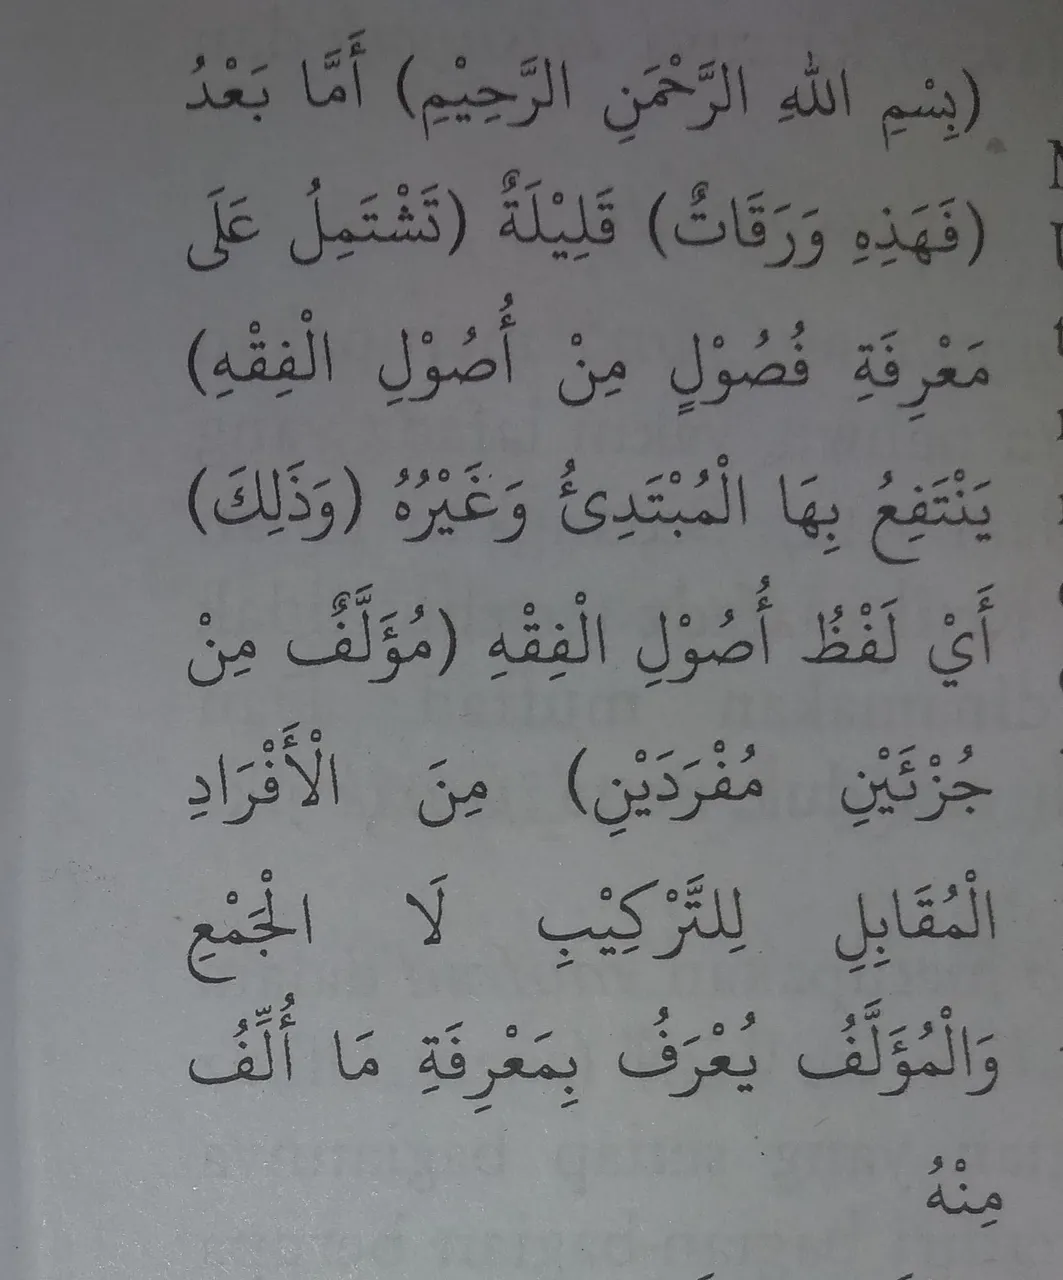 (بِسْمِ اللهِ الرَّحْمَنِ الرَّحِيْمِ) أَمَّا بَعْدُ
(فَهَذِهِ وَرَقَاتٌ) قَلِيْلَةٌ (تَشْتَمِلُ عَلَى
مَعْرِفَةِ فُصُوْلٍ مِنْ أُصُوْلِ الْفِقْهِ)
يَنْتَفِعُ بِهَا الْمُبْتَدِئُ وَغَيْرُهُ (وَذَلِكَ)
أَيْ لَفْظُ أُصُوْلِ الْفِقْهِ (مُؤَلَّفٌ مِنْ
جُزْئَيْنِ مُفْرَدَيْنِ) مِنَ الْأَفْرَادِ
الْمُقَابِلِ لِلتَّرْكِيْبِ لَا الْجَمْعِ
وَالْمُؤَلَّفُ يُعْرَفُ بِمَعْرِفَةِ مَا أُلِّفُ
مِنْهُ